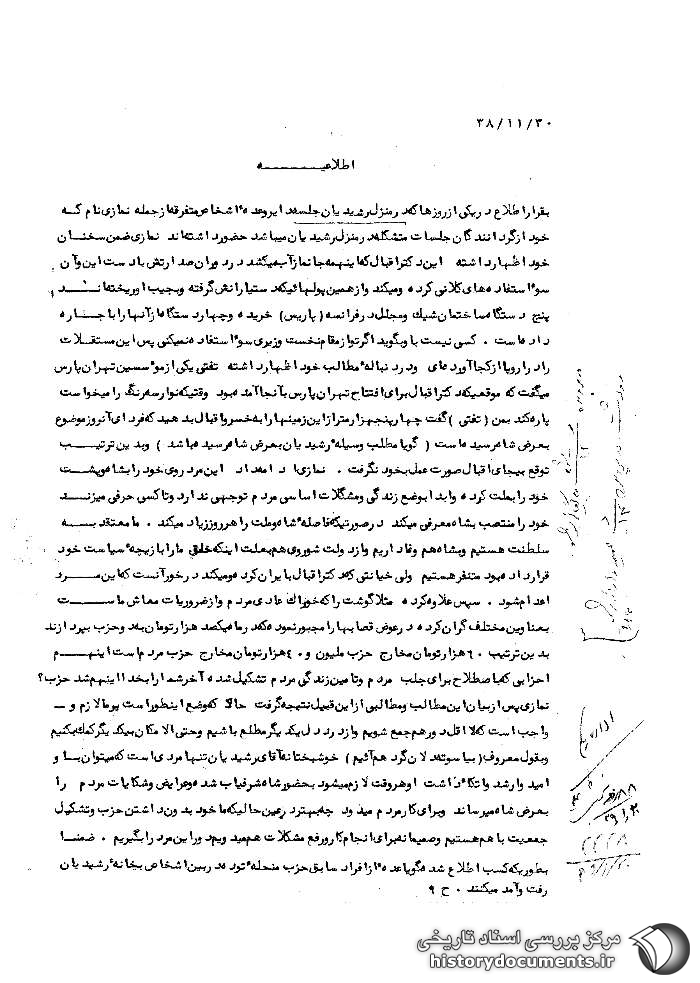 ۳۸/۱۱/۳۰
اطلاعیـــــــه
بقرار اطلاع در یکی از روزها که در منزل رشیدیان جلسه دایر و عده ای اشخاص متفرقه از جمله نمازی نام که
خود از گردانندگان جلسات متشکله در منزل رشیدیان میباشد حضور داشته اند نمازی ضمن سخنان
خود اظهار داشته این دکتر اقبال که اینهمه جانماز آب میکشد در دوران صدارتش با دست این و آن
سوء استفاده های کلانی کرده و میکند و از همین پولهائیکه ستیا رانش گرفته و بجیب او ریخته اند
پنج دستگاه ساختمان شیک و مجلل در فرانسه (پاریس) خریده و چهار دستگاه از آنها را باجاره
داده است . کسی نیست با و بگوید اگر تو از مقام نخست وزیری سوء استفاده نمیکنی پس این مستقلات
را در اروپا از کجا آورده ای و در دنباله مطالب خود اظهار داشته تفتی یکی از موسسین تهران پارس
میگفت که موقعیکه دکتر اقبال برای افتتاح تهران پارس بآنجا آمده بود وقتیکه نوار سه رنگ را میخواست
پاره کند بمن (تفتی) گفت چهار پنجهزار متر از این زمینها را به خسرو اقبال بدهید که فردای آنروز موضوع
بعرض شاه رسیده است ( گویا مطلب وسیله رشیدیان بعرض شاه رسیده باشد ) و بدین ترتیب
توقع بیجای اقبال صورت عمل بخود نگرفت . نمازی ادامه داد این مرد روی خود را بشاه و پشت
خود را بملت کرده و ابدا بوضع زندگی و مشکلات اساسی مردم توجهی ندارد و تا کسی حرفی میزند
خود را منتصب بشاه معرفی میکند در صورتیکه فاصله شاه و ملت را هر روز زیاد میکند . ما معتقد به
سلطنت هستیم و بشاه هم وفاداریم و از دولت شوروی هم بعلت اینکه خلقی ما را بازیچه سیاست خود
قرار داده بود متنفر هستیم ولی خیانتی که دکتر اقبال با ایران کرده و میکند در خور آنست که این مرد
اعدام شود . سپس علاوه کرده مثلا گوشت را که خوراک عادی مردم و از ضروریات معاش ماست
بعناوین مختلف گران کرده در عوض قصابها را مجبور نموده که در ماه یکصد هزار تومان به دو حزب بپردازند
بدین ترتیب ۶۰ هزار تومان مخارج حزب ملیون و ۴۰ هزار تومان مخارج حزب مردم است اینهم
احزابی که با صطلاح برای جلب مردم و تامین زندگی مردم تشکیل شده آخر شما را بخدا اینهم شد حزب؟
نمازی پس از بیان این مطالب و مطالبی از این قبیل نتیجه گرفت حالا که وضع اینطور است بر ما لازم و
واجب است که لااقل دور هم جمع شویم و از درد دل یکدیگر مطلع باشیم و حتی الامکان بیکدیگر کمک بکنیم
و بقول معروف (بیا سوته دلان گرد هم آئیم) خوشبختانه آقای رشیدیان تنها مردی است که میتوان با و
امیدوار شد و اتکاء داشت او هر وقت لازم میشود بحضور شاه شرفیاب شده و عرایض و شکایات مردم را
بعرض شاه میرساند و برای کار مردم میدود چه بهتر در عین حالیکه ما خود بدون داشتن حزب و تشکیل
جمعیت با هم هستیم و صمیمانه برای انجام کار و رفع مشکلات هم میدویم دور این مرد را بگیریم . ضمنا
بطوریکه کسب اطلاع شده گویا عده ای از افراد سابق حزب منحله توده در بین اشخاص بخانه رشیدیان
رفت و آمد میکنند . ح ۹
مرکز بررسی اسناد تاریخی
historydocuments.ir